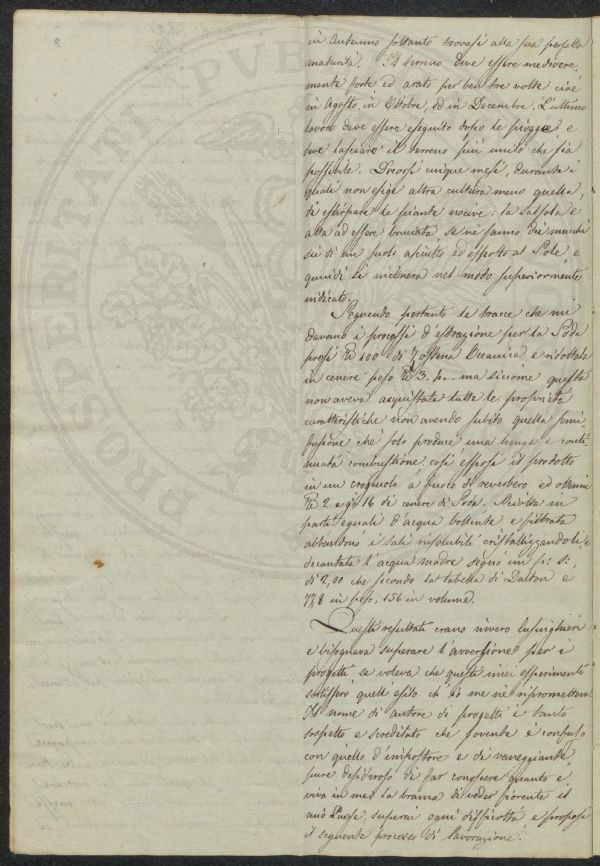 in Autunno soltanto trovasi alla sua perfetta
maturità. Il terreno deve essere mediocre
mente forte ed arato per ben tre volte cioè
in Agosto, in Ottobre, ed in Decembre. L'ultimo
lavoro deve essere eseguito dopo le pioggie, e
deve lasciare il terreno più unito che sia
possibile. Decorsi cinque mesi, durante i
quali non esige altra cultura meno quella
di estirpare le piante nocive; la salsola è
atta ad essere bruciata se ne fanno dei mucchi
su di un suolo asciutto ed esposto al Sole, e
quindi si incinera nel modo superiormente
indicato.
Seguendo pertanto le tracce che mi
davano i processi d'estrazione per la Soda
presi 100 di Zostera Oceanica e ridottala
in cenere peso 3. ma siccome questa
non aveva acquistate tutte le proprietà
caratteristiche non avendo subito quella semi
fusione che solo produce una lunga e conti
nuata combustione, così esposi il prodotto
in un crogiuolo a fuoco di reverbero ed ottenni
2 e 16 di cenere di Soda. Sciolta in
parti eguali d'acqua bollente e filtrata
abbandonò i sali insolubili cristallizzandoli e
decantata l'acqua madre segnò in p: s:
di 2,00 che secondo la tabella di Dalton è
77,8 in peso, 156 in volume.
Questi resultati erano invero lusinghieri
e bisognava superare l'avversione per i
progetti se voleva che questi miei esperimenti
sortissero quell' esito ch' io me ne ripromettevo.
Il nome di autore di progetti è tanto
sospetto e screditato che sovente è confuso
con quello d'impostore e di vaneggiante,
pure desideroso di far conoscere quanto è
viva in me la brama di veder fiorente il
mio Paese, superai ogni difficoltà e proposi
il seguente processo di lavorazione.